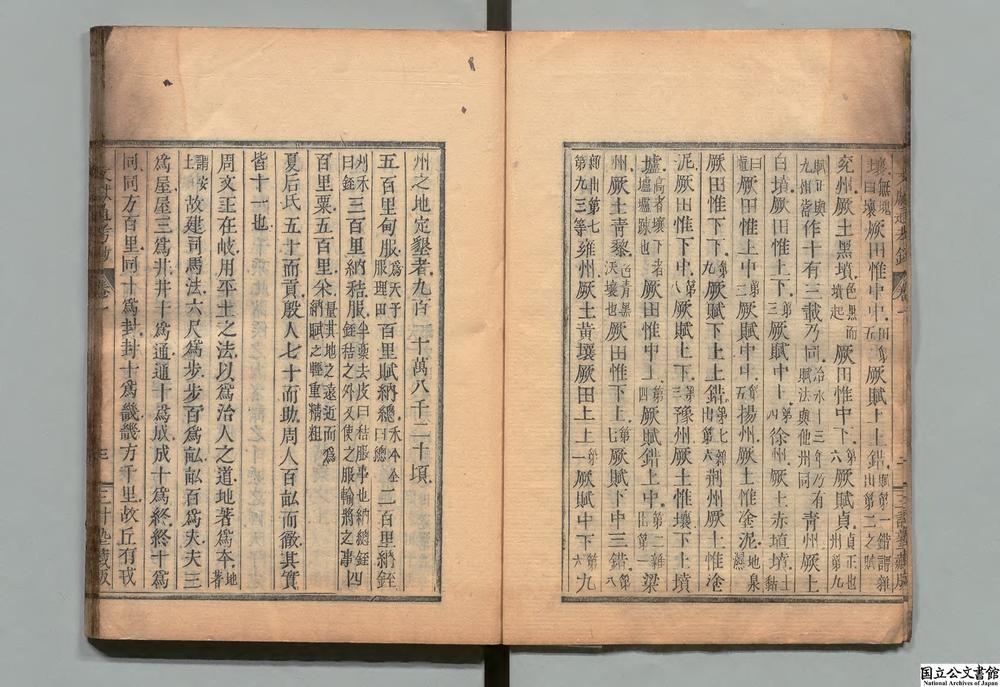 壤無塊曰壤厥田惟中中田第五厥賦上上錯賦第一錯謂雜出第二之賦
兖州厥土黑墳色黑而墳起厥田惟中下第六厥賦貞貞正也州第九
賦正與九州皆作十有三載乃同治水十三年乃有賦法與他州同青州厥土
白墳厥田惟上下第三厥賦中上第四徐州厥土赤埴墳土黏
曰埴厥田惟上中第二厥賦中中第五揚州厥土惟塗泥地泉濕
厥田惟下下第九厥賦下上上錯第七雜出第六荆州厥土惟塗
泥厥田惟下中第八厥賦上下第三豫州厥土惟壤下土墳
壚高者壤下者壚壚疏也厥田惟中上第四厥賦錯上中第二雜出第一梁
州厥土青黎色青黑沃壤也厥田惟下上第七厥賦下中三錯第八
雜出第七第九三等雍州厥土黃壤厥田上上第一厥賦中下第六九
州之地定墾者九百一十萬八千二十頃
五百里甸服爲天子服理田百里賦納總禾本全曰總二百里納銍
刈禾曰銍三百里納秸服半藁去皮曰秸服事也納總銍秸之外又使之服輸將之事四
百里粟五百里米量其地之遠近而爲納賦之輕重精粗
夏后氏五十而貢殷人七十而助周人百畝而徹其實
皆十一也
周文王在岐用平土之法以爲治人之道地著爲本地著
謂安土故建司馬法六尺爲步步百爲畝畝百爲夫夫三
爲屋屋三爲井井十爲通通十爲成成十爲終終十爲
同同方百里同十爲封封十爲畿畿方千里故丘有戎
文獻通考鈔 卷一 三
国立公文書館
National Archives of Japan